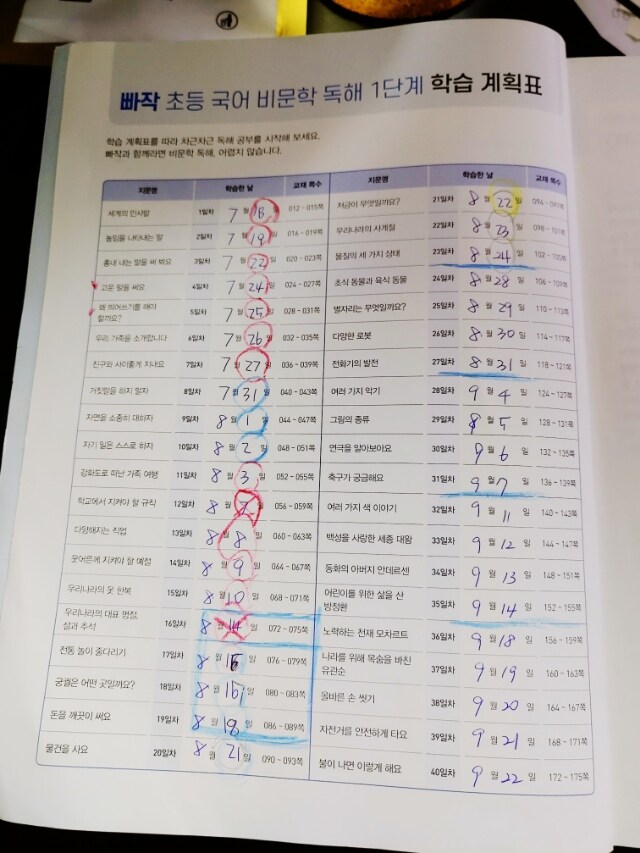 빠작 초등 국어 비문학 독해 1단계 학습 계획표
학습 계획표를 따라 차근차근 독해 공부를 시작해 보세요.
빠작과 함께라면 비문학 독해, 어렵지 않습니다.
지문명 학습한 날 교재 쪽수
세계의 인사말 1일차 7월 18일 012 ~ 015쪽
높임을 나타내는 말 2일차 7월 19일 016 ~ 019쪽
흉내 내는 말을 써 봐요 3일차 7월 22일 020 ~ 023쪽
고운 말을 써요 4일차 7월 24일 024 ~ 027쪽
왜 띄어쓰기를 해야 할까요? 5일차 7월 25일 028 ~ 031쪽
우리 가족을 소개합니다 6일차 7월 26일 032 ~ 035쪽
친구와 사이좋게 지내요 7일차 7월 27일 036 ~ 039쪽
거짓말을 하지 말자 8일차 7월 31일 040 ~ 043쪽
자연을 소중히 대하자 9일차 8월 1일 044 ~ 047쪽
자기 일은 스스로 하자 10일차 8월 2일 048 ~ 051쪽
강화도로 떠난 가족 여행 11일차 8월 3일 052 ~ 055쪽
학교에서 지켜야 할 규칙 12일차 8월 7일 056 ~ 059쪽
다양해지는 직업 13일차 8월 8일 060 ~ 063쪽
웃어른께 지켜야 할 예절 14일차 8월 9일 064 ~ 067쪽
우리나라의 옷 한복 15일차 8월 10일 068 ~ 071쪽
우리나라의 대표 명절,
설과 추석 16일차 8월 14일 072 ~ 075쪽
전통 놀이 줄다리기 17일차 8월 일 076 ~ 079쪽
궁궐은 어떤 곳일까요? 18일차 8월 일 080 ~ 083쪽
돈을 깨끗이 써요 19일차 8월 18일 086 ~ 089쪽
물건을 사요 20일차 8월 21일 090 ~ 093쪽
지문명 학습한 날 교재 쪽수
저금이 무엇일까요? 21일차 8월 22일 094 ~ 097쪽
우리나라의 사계절 22일차 8월 23일 098 ~ 101쪽
물질의 세 가지 상태 23일차 8월 24일 102 ~ 105쪽
초식 동물과 육식 동물 24일차 8월 28일 106 ~ 109쪽
별자리는 무엇일까요? 25일차 8월 29일 110 ~ 113쪽
다양한 로봇 26일차 8월 30일 114 ~ 117쪽
전화기의 발전 27일차 8월 31일 118 ~ 121쪽
여러 가지 악기 28일차 9월 4일 124 ~ 127쪽
그림의 종류 29일차 월 5일 128 ~ 131쪽
연극을 알아보아요 30일차 9월 6일 132 ~ 135쪽
축구가 궁금해요 31일차 9월 7일 136 ~ 139쪽
여러 가지 색 이야기 32일차 9월 11일 140 ~ 143쪽
백성을 사랑한 세종 대왕 33일차 9월 12일 144 ~ 147쪽
동화의 아버지 안데르센 34일차 9월 13일 148 ~ 151쪽
어린이를 위한 삶을 산
방정환 35일차 9월 14일 152 ~ 155쪽
노력하는 천재 모차르트 36일차 9월 18일 156 ~ 159쪽
나라를 위해 목숨을 바친
유관순 37일차 9월 19일 160 ~ 163쪽
올바른 손 씻기 38일차 9월 20일 164 ~ 167쪽
자전거를 안전하게 타요 39일차 9월 21일 168 ~ 171쪽
불이 나면 이렇게 해요 40일차 9월 22일 172 ~ 175쪽